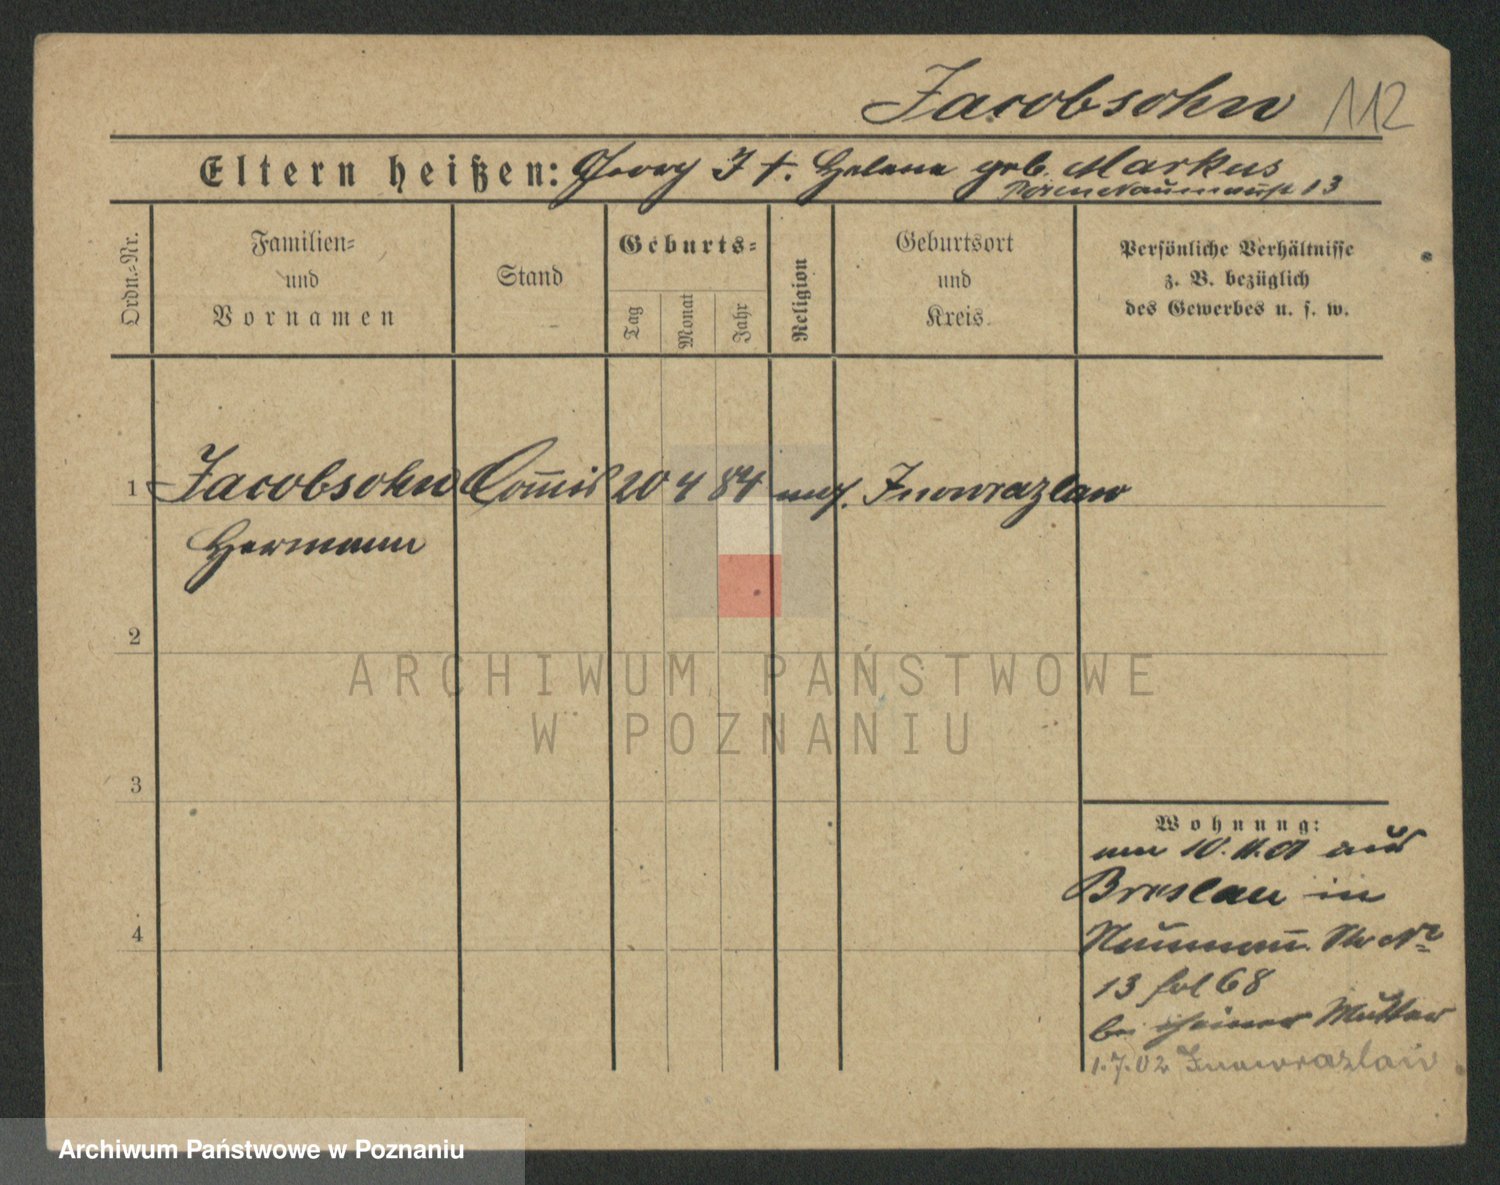 Jacobsohn 112
Eltern heißen: Georg J †. Helene geb. Markus
Posen Naumannstr 13
Ordn.-Nr.
Familien-
und
Vornamen
Stand
Geburts-
Tag
Monat
Jahr
Religion
Geburtsort
und
Kreis
Persönliche Verhältnisse
z. B. bezüglich
des Gewerbes u. s. w.
1 Jacobsohn Com̅is 20 4 84 mos. Inowrazlaw
Hermann
2
ARCHIWUM PAŃSTWOWE
W POZNANIU
3
Wohnung:
10. 11. 01 aus
Breslau in
Nauman̅. Str Nr
13 fol 68
bei seiner Mutter
4
1.7.02 Inowrazlaw
Archiwum Państwowe w Poznaniu